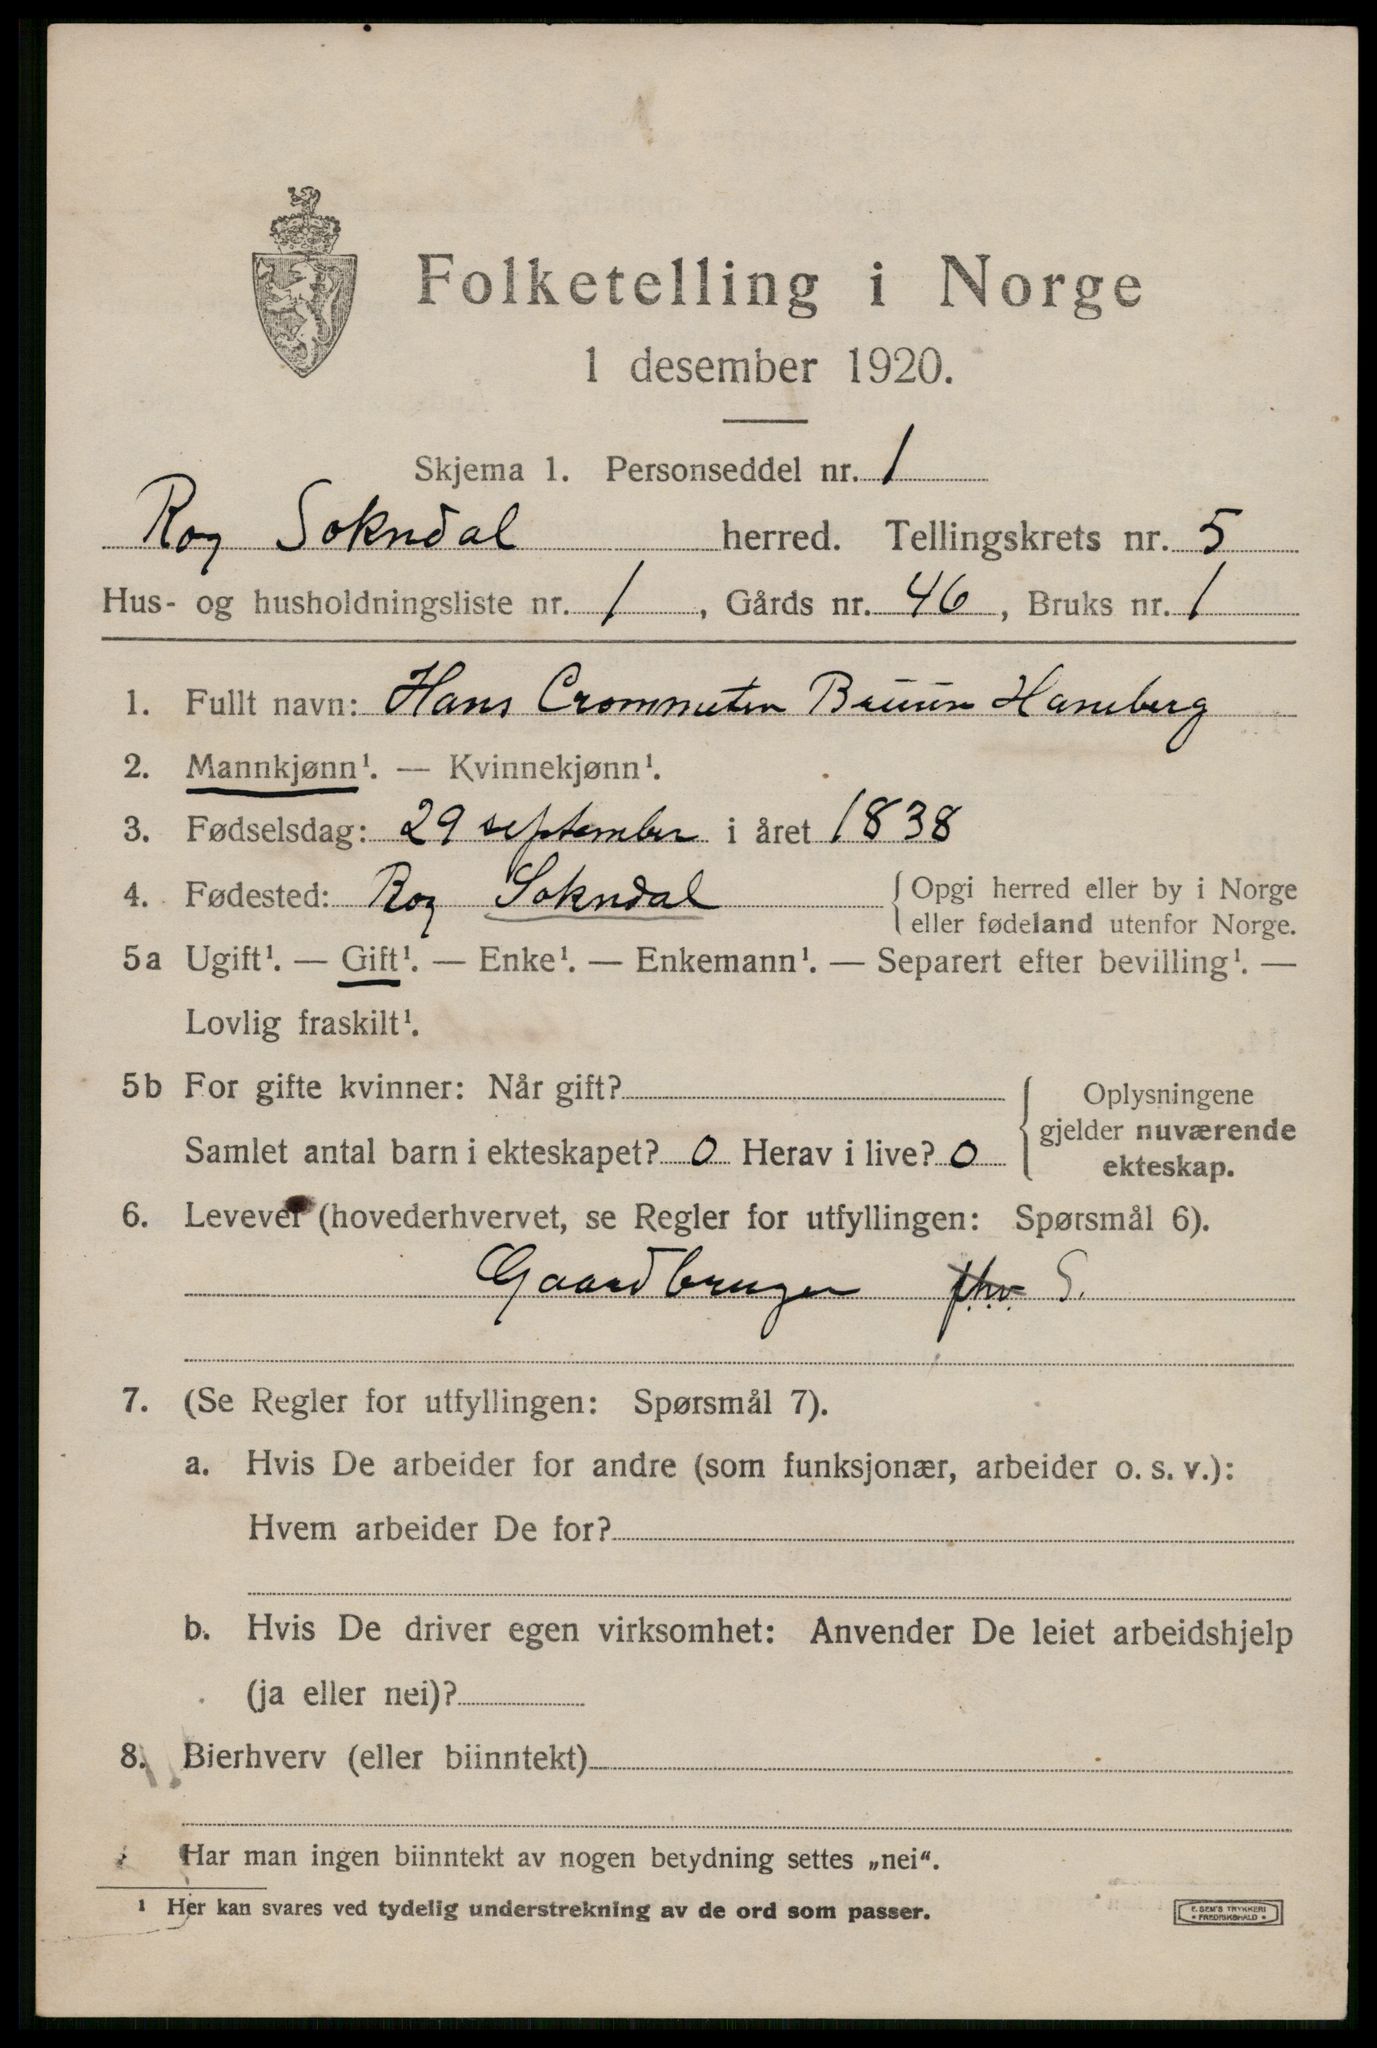 Folketelling i Norge
1 desember 1920.
Skjema 1. Personseddel nr. 1
Rog Sokndal herred. Tellingskrets nr. 5
Hus- og husholdningsliste nr. 1, Gårds nr. 46, Bruks nr. 1
1. Fullt navn: Hans Bruun Haneberg
2. Mannkjønn¹. — Kvinnekjønn¹.
3. Fødselsdag: 29 september i året 1838
4. Fødested: Rog Sokndal { Opgi herred eller by i Norge
eller fødeland utenfor Norge.
5a Ugift¹. — Gift¹. — Enke¹. — Enkemann¹. — Separert efter bevilling¹. —
Lovlig fraskilt¹.
5b For gifte kvinner: Når gift? { Oplysningene
gjelder nuværende
Samlet antal barn i ekteskapet? 0 Herav i live? 0 ekteskap.
6. Levevei (hovederhvervet, se Regler for utfyllingen: Spørsmål 6).
Gaardbruger S.
7. (Se Regler for utfyllingen: Spørsmål 7).
a. Hvis De arbeider for andre (som funksjonær, arbeider o. s. v.):
Hvem arbeider De for?
b. Hvis De driver egen virksomhet: Anvender De leiet arbeidshjelp
(ja eller nei)?
8. Bierhverv (eller biinntekt)
Har man ingen biinntekt av nogen betydning settes „nei“.
¹ Her kan svares ved tydelig understrekning av de ord som passer.
E. SEM'S TRYKKERI
FREDRIKSHALD